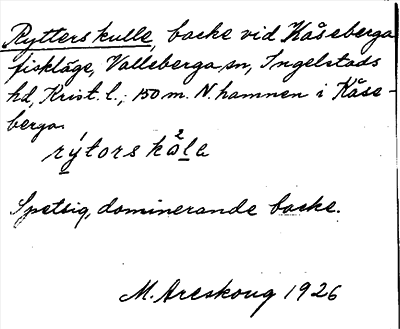 Rytterskulle, backe vid Kåseberga
fiskläge, Valleberga sn, Ingelstads
hd, Krist. l.; 150 m. N. hamnen i Kåse-
berga.
rýtors kålа
Spetsig, dominerande backe.
M. Areskoug 1926